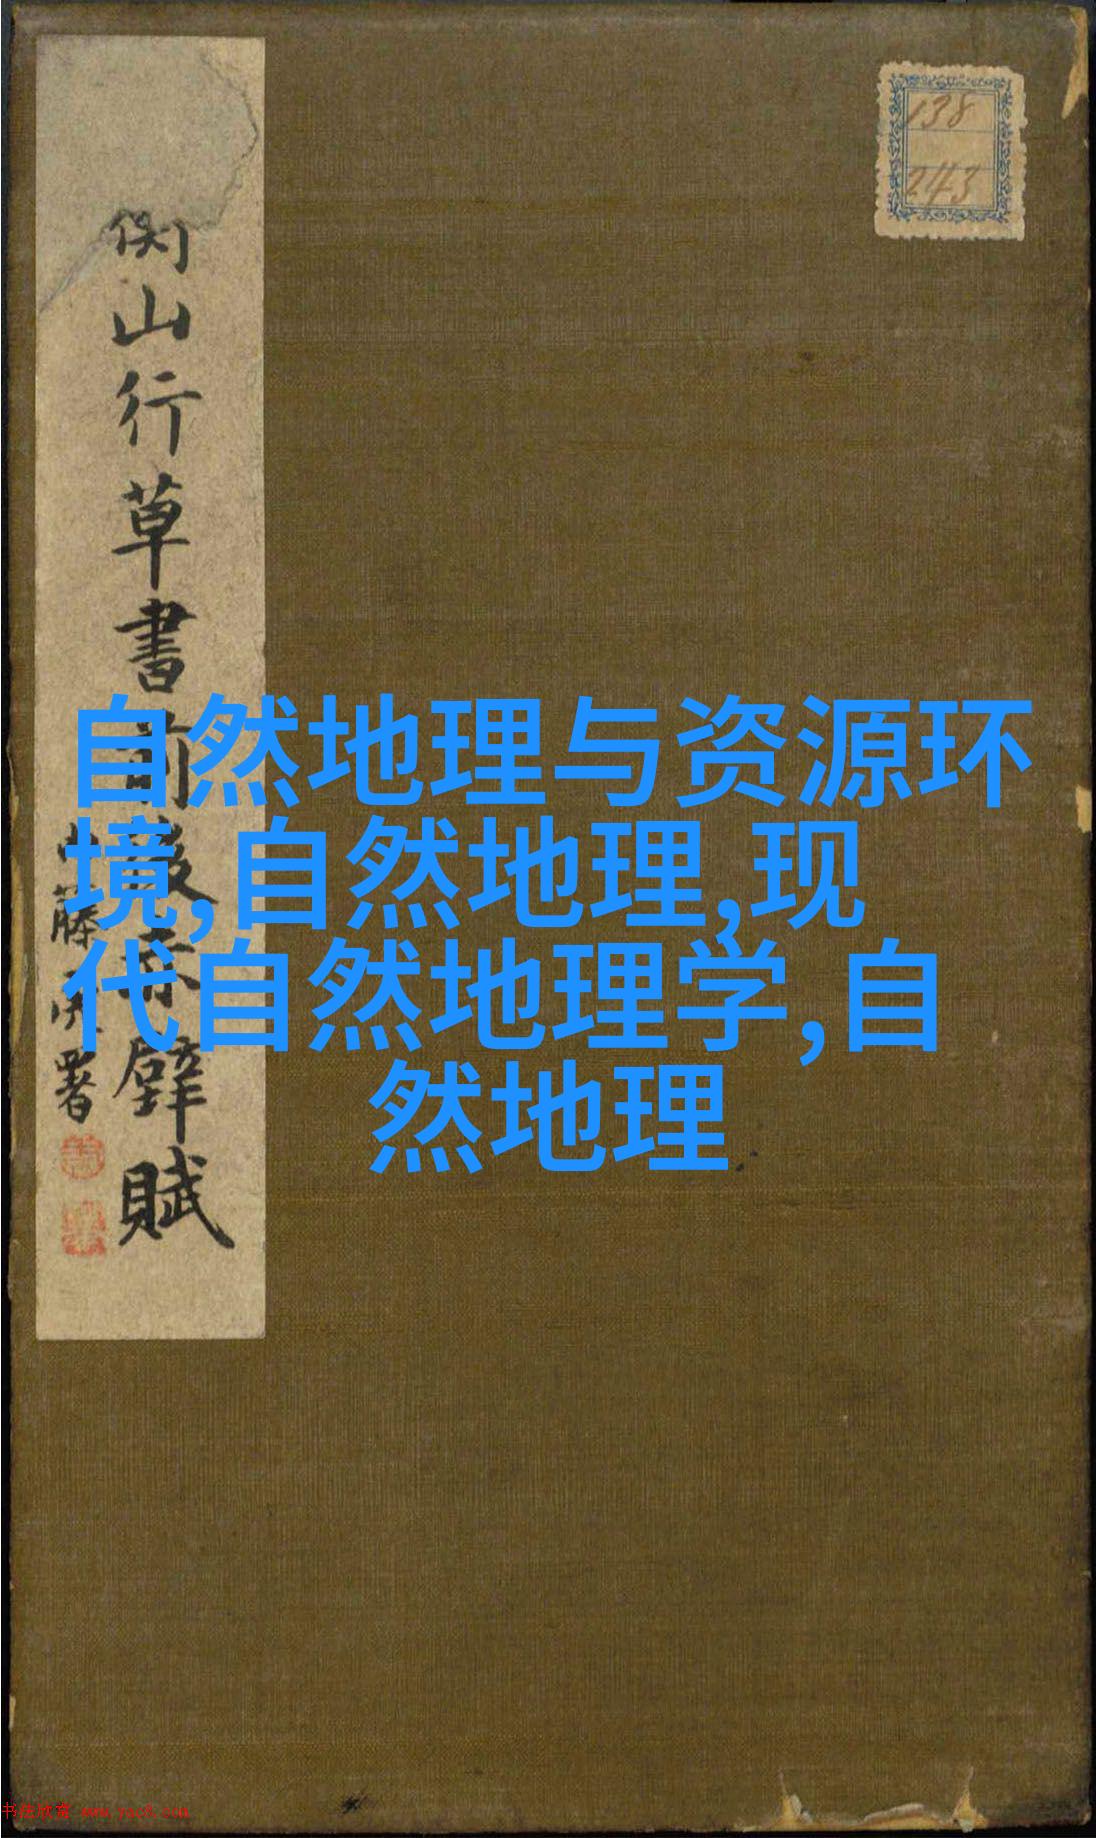 自然地理与资源环
境,自然地理,现
代自然地理学,自
然地理
138
243
山行草書前後赤壁賦
书法欣赏 www.yac8.com